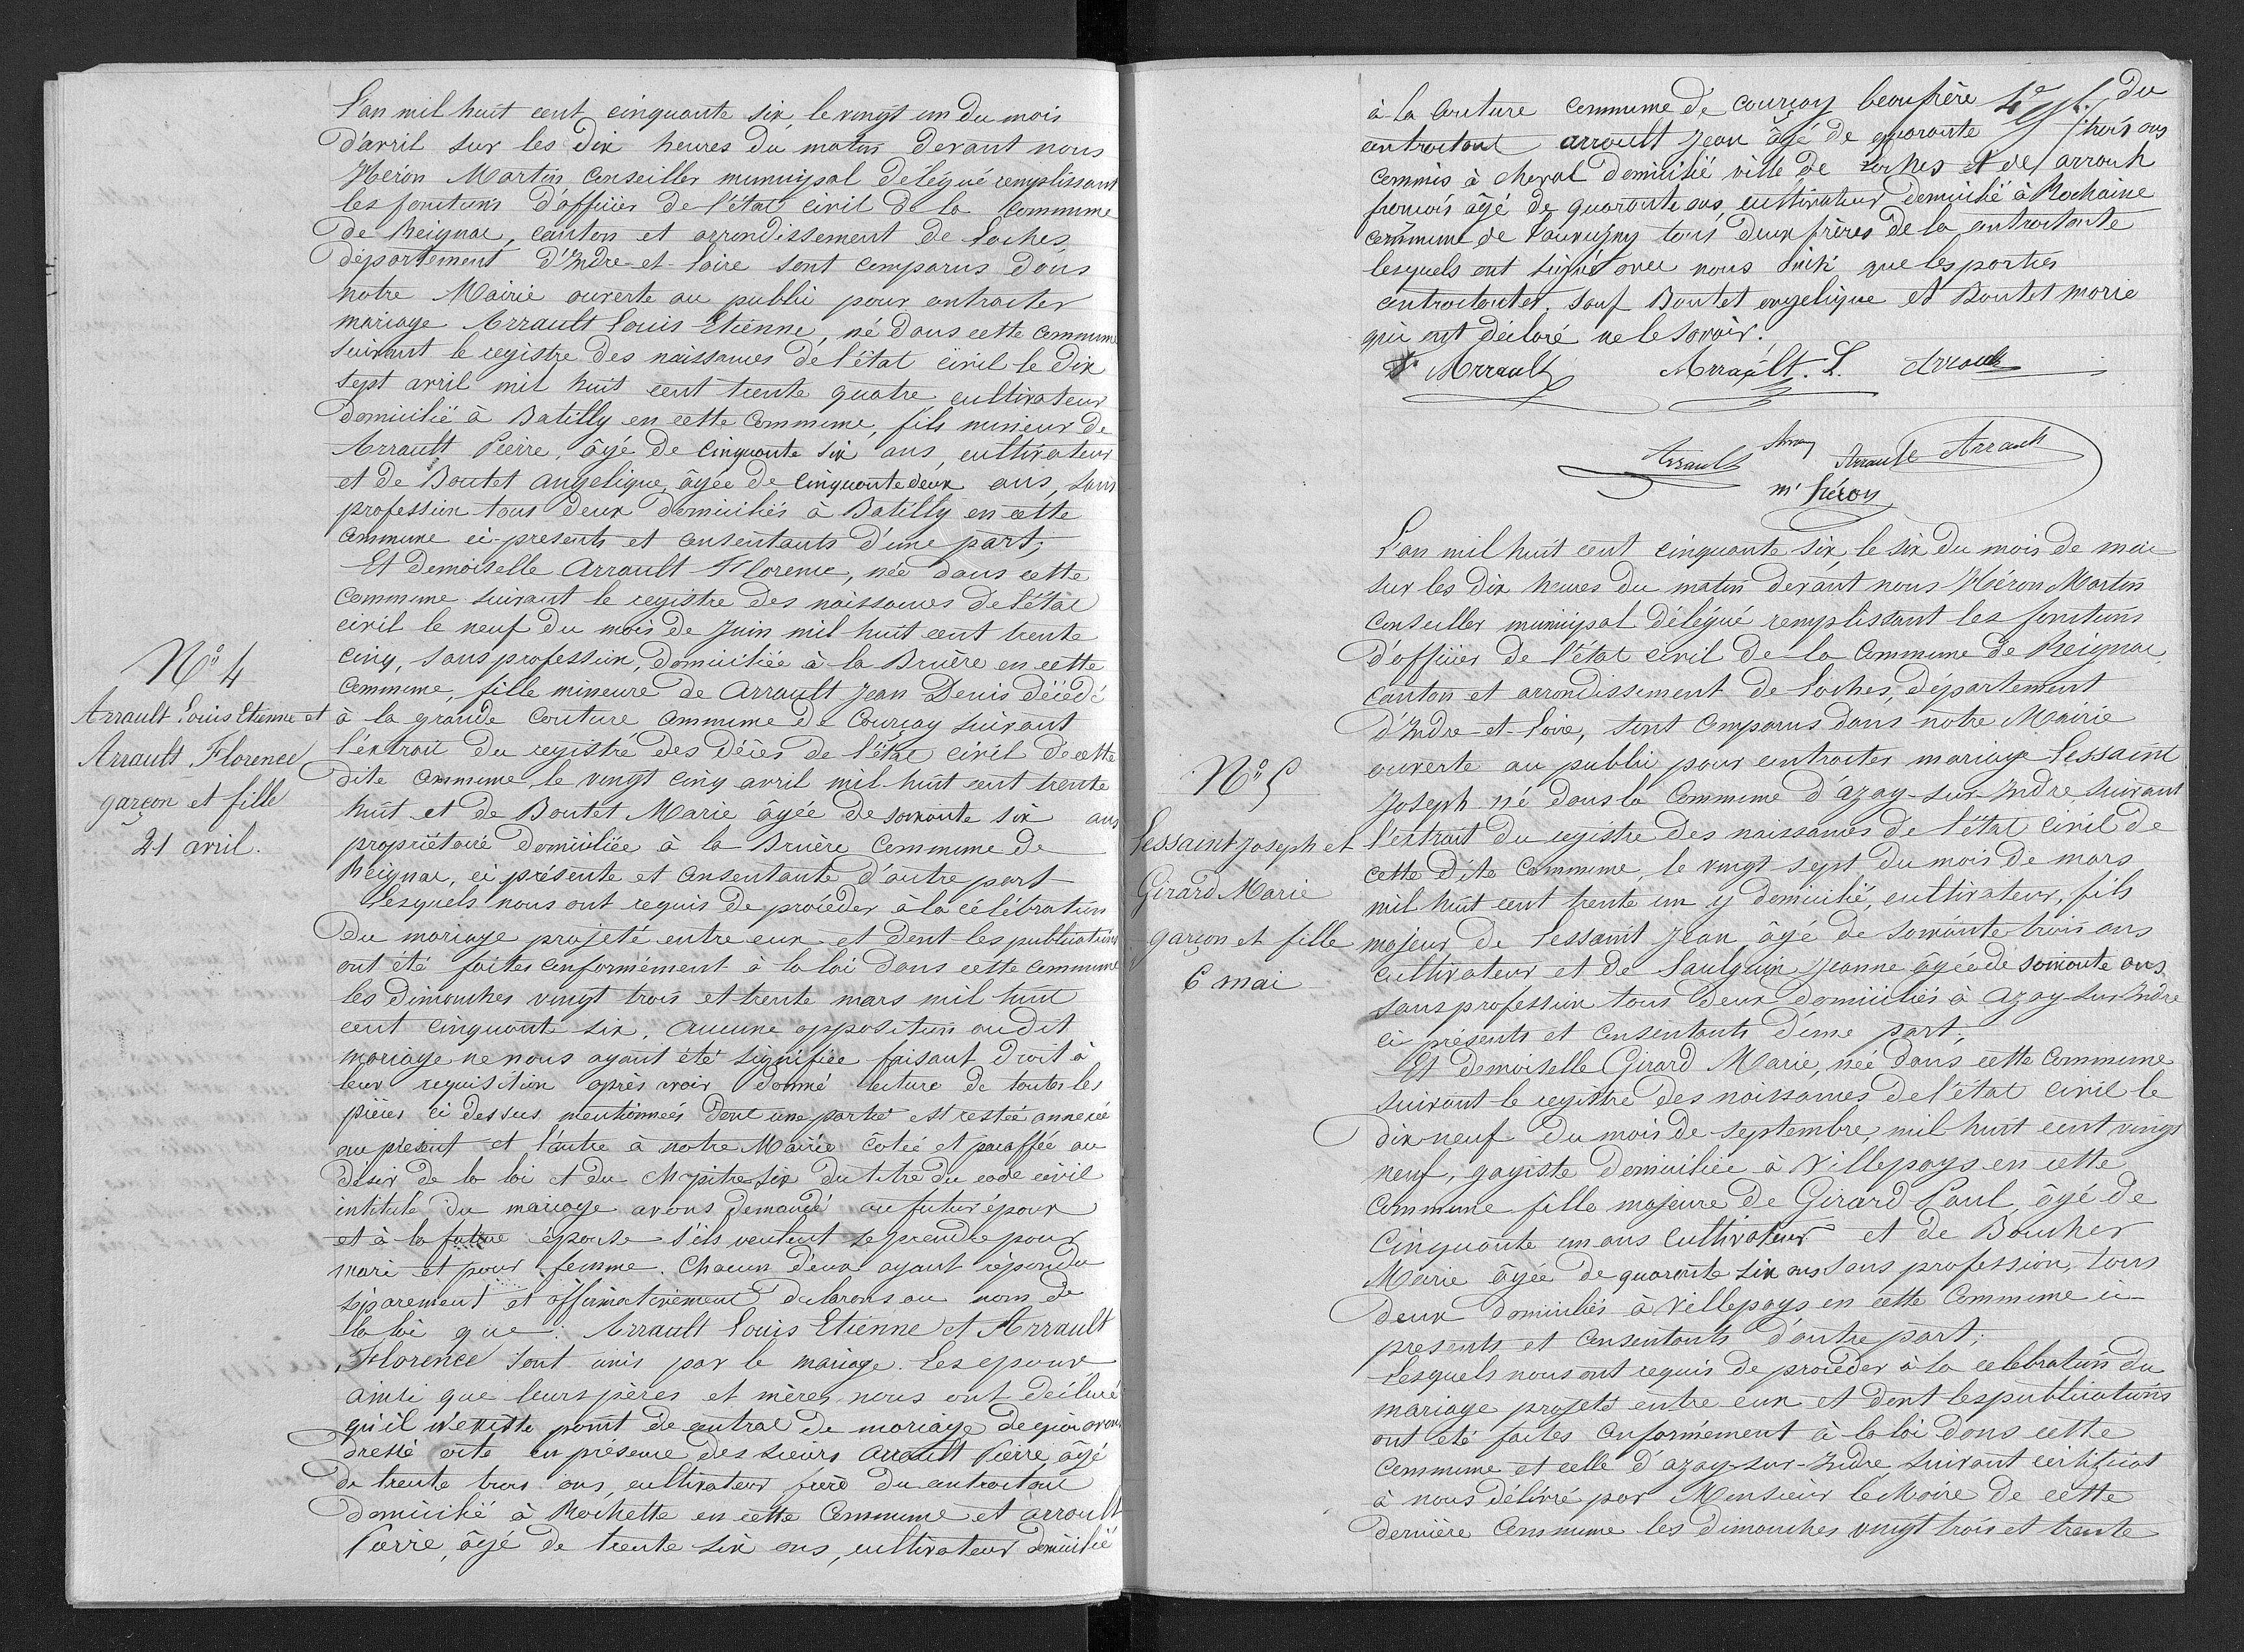 L'an mil huit cent cinquante six, le vingt un du mois
d'avril sur les dix heures du matin devant nous
Héron Martin Conseiller municipal délégué remplissant
les fonctions d'officier de l'état civil de la Commune
de Reignac, canton et arrondissement de Loches,
département d'Indre-et-Loire sont comparus dans
notre Mairie ouverte au public pour contracter
mariage Arrault Louis Etienne, né dans cette commune
suivant le registre des naissances de l'état civil le dix
sept avril mil huit cent trente quatre cultivateur
domicilié à Batilly en cette Commune, fils mineur de
Arrault Pierre, âgé de cinquante six ans, cultivateur
et de Boutet angelique, âgée de cinquante deux ans, sans
profession tous deux domiciliés à Batilly en cette
Commune ci-presents et consentants d'une part;
Et demoiselle Arrault Florence, née dans cette
Commune suivant le registre des naissances de l'état
civil le neuf du mois de Juin mil huit cent trente
cinq, sans profession, domiciliée à la Bruère en cette
Commune, fille mineure de Arrault Jean Denis décédé
N° 4
Arrault Louis Etienne et
Arrault Florence
garçon et fille
21 avril.
à la grande Couture commune de Courçay suivant
l'extrait du registre des décès de l'état civil de cette
dite commune, le vingt cinq avril mil huit cent trente
huit et de Boutet Marie âgée de soixante six ans
propriétaire domiciliée à la Bruère Commune de
Reignac, ci présente et consentante d'autre part
Lesquels nous ont requis de procéder à la célébration
du mariage projeté entre eux et dont les publications
ont été faites conformément à la loi dans cette commune
les dimanches vingt trois et trente mars mil huit
cent cinquante six, aucune opposition audit
mariage ne nous ayant été signifiée faisant droit à
leur requisition après avoir donné lecture de toutes les
pièces ci dessus mentionnées dont une partie est restée annexée
au présent et l'autre à notre Mairie cotée et paraffée au
desir de la loi et du chapitre six du titre du code civil
intitulé du mariage avons demandé au futur époux
et à la future épouse s'ils veulent se prendre pour
mari et pour femme. Chacun d'eux ayant répondu
séparement et affirmativement declarons au nom de
la loi que Arrault Louis Etienne et Arrault
Florence sont unis par le mariage. Les epoux
ainsi que leurs pères et mères nous ont déclaré
qu'il n'existe point de contrat de mariage de quoi avons
dressé acte en présence des sieurs Arrault Pierre, âgé
de trente trois ans, cultivateur frère du contractant
domicilié à Rochette en cette Commune et arrault
Pierre, âgé de trente six ans, cultivateur domicilié
à la Couture Commune de Courçay beaufrère du
contractant arrault Jean âgé de quarante trois ans
commis à cheval domicilié ville de Loches et de arrault
françois âgé de quarante ans, cultivateur domicilié à Rochaine
commune de tous deux frères de la contractante
lesquels ont signé avec nous ainsi que les parties
contractantes. Sauf Boutet angelique et Boutet marie
qui ont déclaré ne le savoir.
Arrault Arrault. L. Arrault
Arrault Arrault Arrault
m. héron
L'an mil huit cent cinquante six, le six du mois de mai
sur les dix heures du matin devant nous Héron Martin
Conseiller municipal délégué remplissant les fonctions
d'officier de l'état civil de la Commune de Reignac,
canton et arrondissement de Loches, département
d'Indre-et-Loire, sont comparus dans notre Mairie
ouverte au public pour contracter mariage Lessaint
Joseph né dans la Commune d'azay-sur-Indre, suivant
N° 5
Lessaint Joseph et
Girard Marie
garçon et fille
6 mai
l'extrait du registre des naissances de l'état civil de
cette dite Commune, le vingt-sept du mois de mars
mil huit cent trente un y domicilié, cultivateur, fils
majeur de Lessaint Jean âgé de soixante trois ans
cultivateur et de Saulquin Jeanne âgée de soixante ans,
sans profession tous deux domiciliés à azay-sur-Indre
ci présents et consentants d'une part,
Et demoiselle Girard Marie, née dans cette Commune
suivant le registre des naissances de l'état civil le
dix neuf du mois de septembre, mil huit cent vingt
neuf, gagiste domiciliée à Villepays en cette
commune fille majeure de Girard Paul âgé de
cinquante un ans cultivateur et de Boucher
Marie âgée de quarante six ans sans profession, tous
deux domiciliés à Villepays en cette Commune ci-
presents et consentants d'autre part;
Lesquels nous ont requis de procéder à la celebration du
mariage projeté entre eux et dont les publications
ont été faites conformément à la loi dans cette
Commune et celle d'azay-sur-Indre suivant certificat
à nous délivré par Monsieur le Maire de cette
dernière Commune les dimanches vingt trois et trente